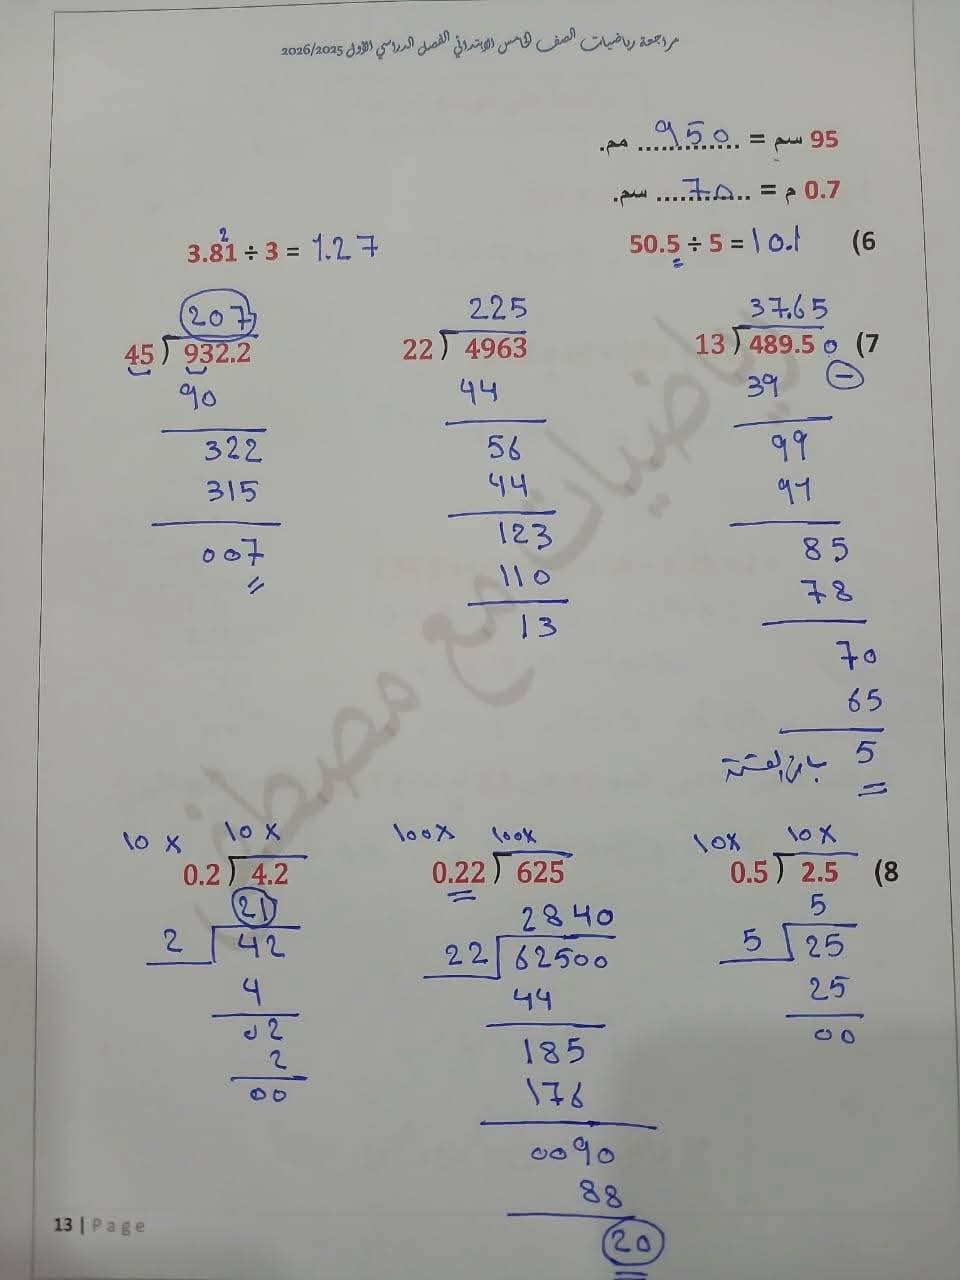 مراجعة رياضيات الصف الخامس الابتدائي الفصل الدراسي الأول 2026/2025
95 سم = 950 مم.
0.7 م = 70 سم.
6) 50.5 ÷ 5 = 10.1
3.81 ÷ 3 = 1.27
2
7)
37.65
13 ) 489.5 0
39
99
91
85
78
70
65
5 باقي القسمة
225
22 ) 4963
44
56
44
123
110
13
207
45 ) 932.2
90
322
315
007
8)
10x 10x
0.5 ) 2.5
5
5 25
25
00
100x 100x
0.22 ) 625
2840
22 62500
44
185
176
0090
88
20
10 x 10 x
0.2 ) 4.2
21
2 42
4
02
2
00
رياضيات مع مصطفى
13 | Page